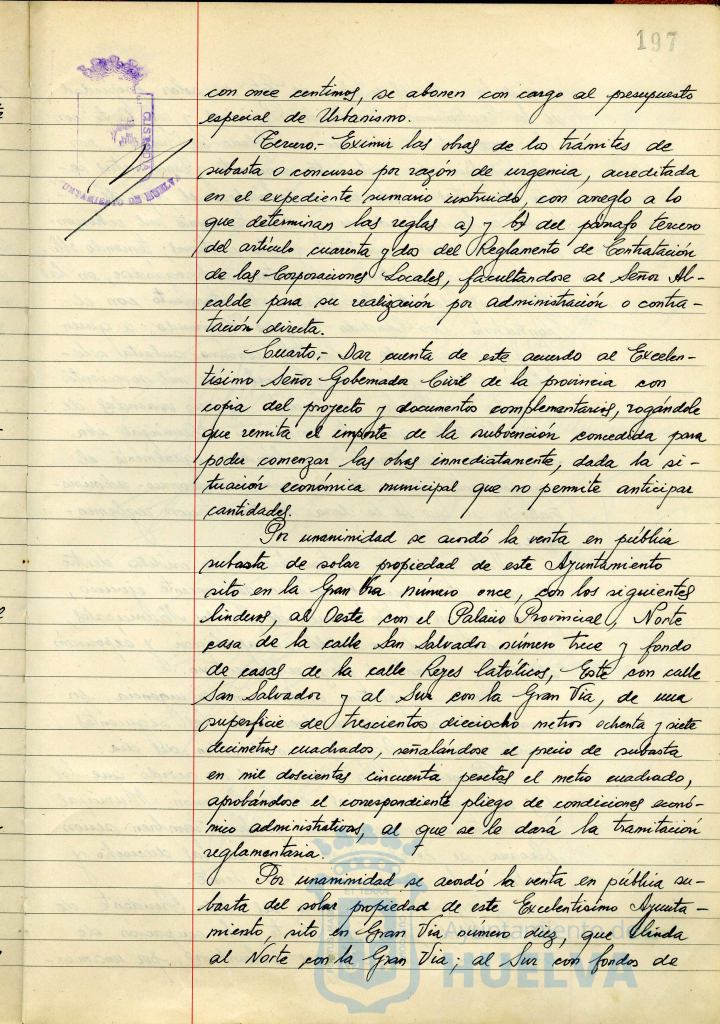 197
con once centimos, se abonen con cargo al presupuesto
especial de Urbanismo.
Tercero.- Eximir las obras de los trámites de
subasta o concurso por razón de urgencia, acreditada
en el expediente sumario instruido, con arreglo a lo
que determinan las reglas a) y b) del párrafo tercero
del artículo cuarenta y dos del Reglamento de Contratación
de las Corporaciones Locales, facultandose al Señor Al-
calde para su realización por administración o contra-
tación directa.
Cuarto.- Dar cuenta de este acuerdo al Excelen-
tísimo Señor Gobernador Civil de la provincia con
copia del proyecto y documentos complementarios, rogándole
que remita el importe de la subvención concedida para
poder comenzar las obras inmediatamente, dada la si-
tuación económica municipal que no permite anticipar
cantidades.
Por unanimidad se acordó la venta en pública
subasta de solar propiedad de este Ayuntamiento
sito en la Gran Vía número once, con los siguientes
linderos, al Oeste con el Palacio Provincial, Norte
casa de la calle San Salvador número trece y fondo
de casas de la calle Reyes Católicos, Este con calle
San Salvador y al Sur con la Gran Vía, de una
superficie de trescientos dieciocho metros ochenta y siete
decimetros cuadrados, señalándose el precio de subasta
en mil doscientas cincuenta pesetas el metro cuadrado,
aprobándose el correspondiente pliego de condiciones econó-
mico administrativas, al que se le dará la tramitación
reglamentaria.
Por unanimidad se acordó la venta en pública su-
basta del solar propiedad de este Excelentísimo Ayunta-
miento, sito en Gran Vía número diez, que linda
al Norte con la Gran Vía; al Sur con fondos de
AYUNTAMIENTO DE HUELVA
Ayuntamiento de
HUELVA